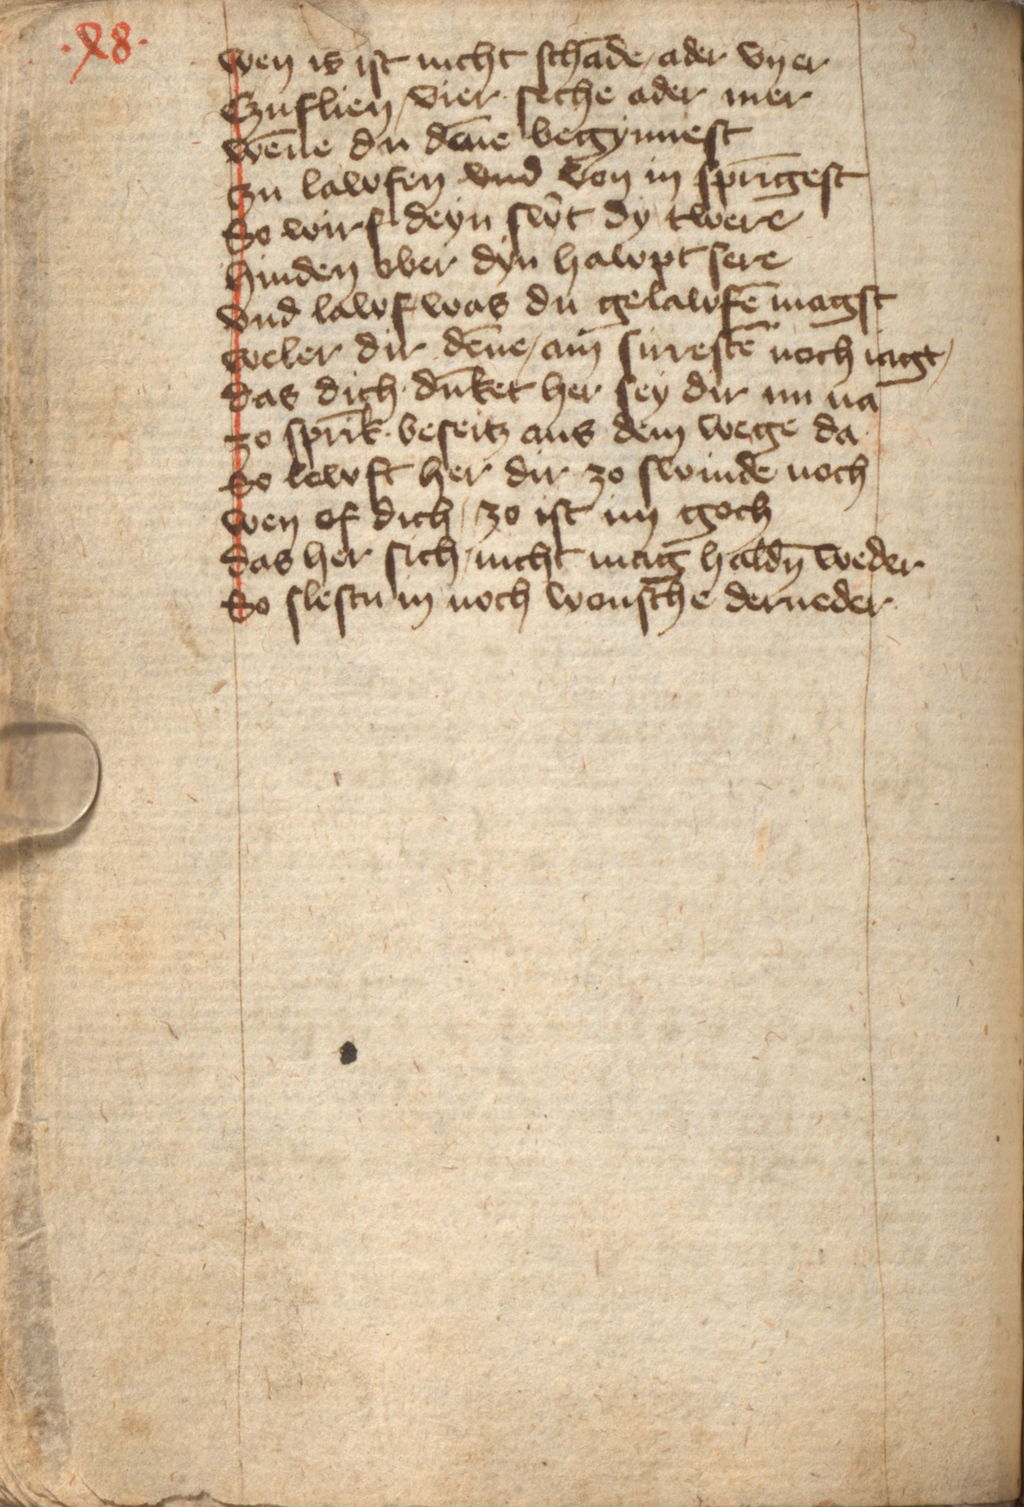 ·X8·
wen is ist nicht schade / ader vner
Czuflien / vier seche ader mer
wēne du dēne begynnest
zu lawfen vnd von in spri̅gest
So wirf deyn sw̄t dy twere
hinden ober dyn hawpt sere
vnd lawf was du gelawfē magst
weler dir dēne / am̄ sirestē noch iagt /
das dich du̅ket her sey dir nu na
zo spri̅k beseitz aus dem wege da
So lewft her dir zo swinde noch
wen of dich / zo ist im goch
das her sich / nicht mag haldn̄ weder
So slestu in noch wonsche derneder